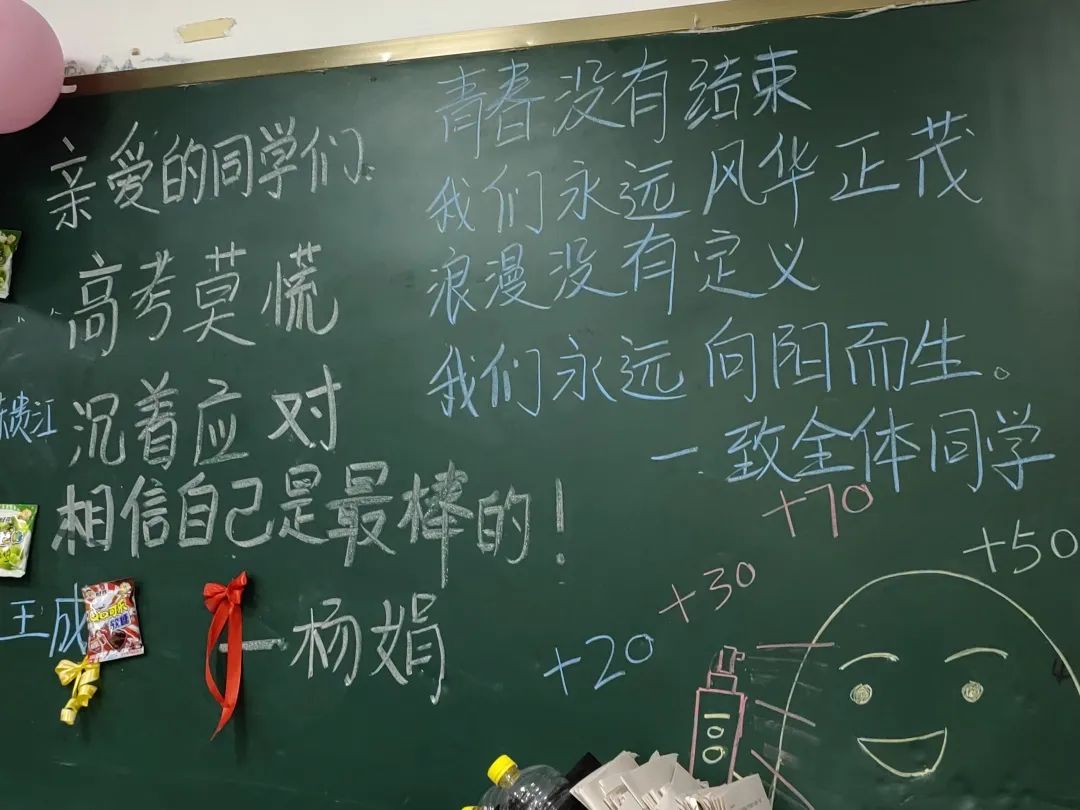 亲爱的同学们:
高考莫慌
沉着应对
相信自己是最棒的!
一杨娟
青春没有结束
我们永远风华正茂
浪漫没有定义
我们永远向阳而生。
一致全体同学
贵江
王成
软糖
+70
+50
+30
+20
100